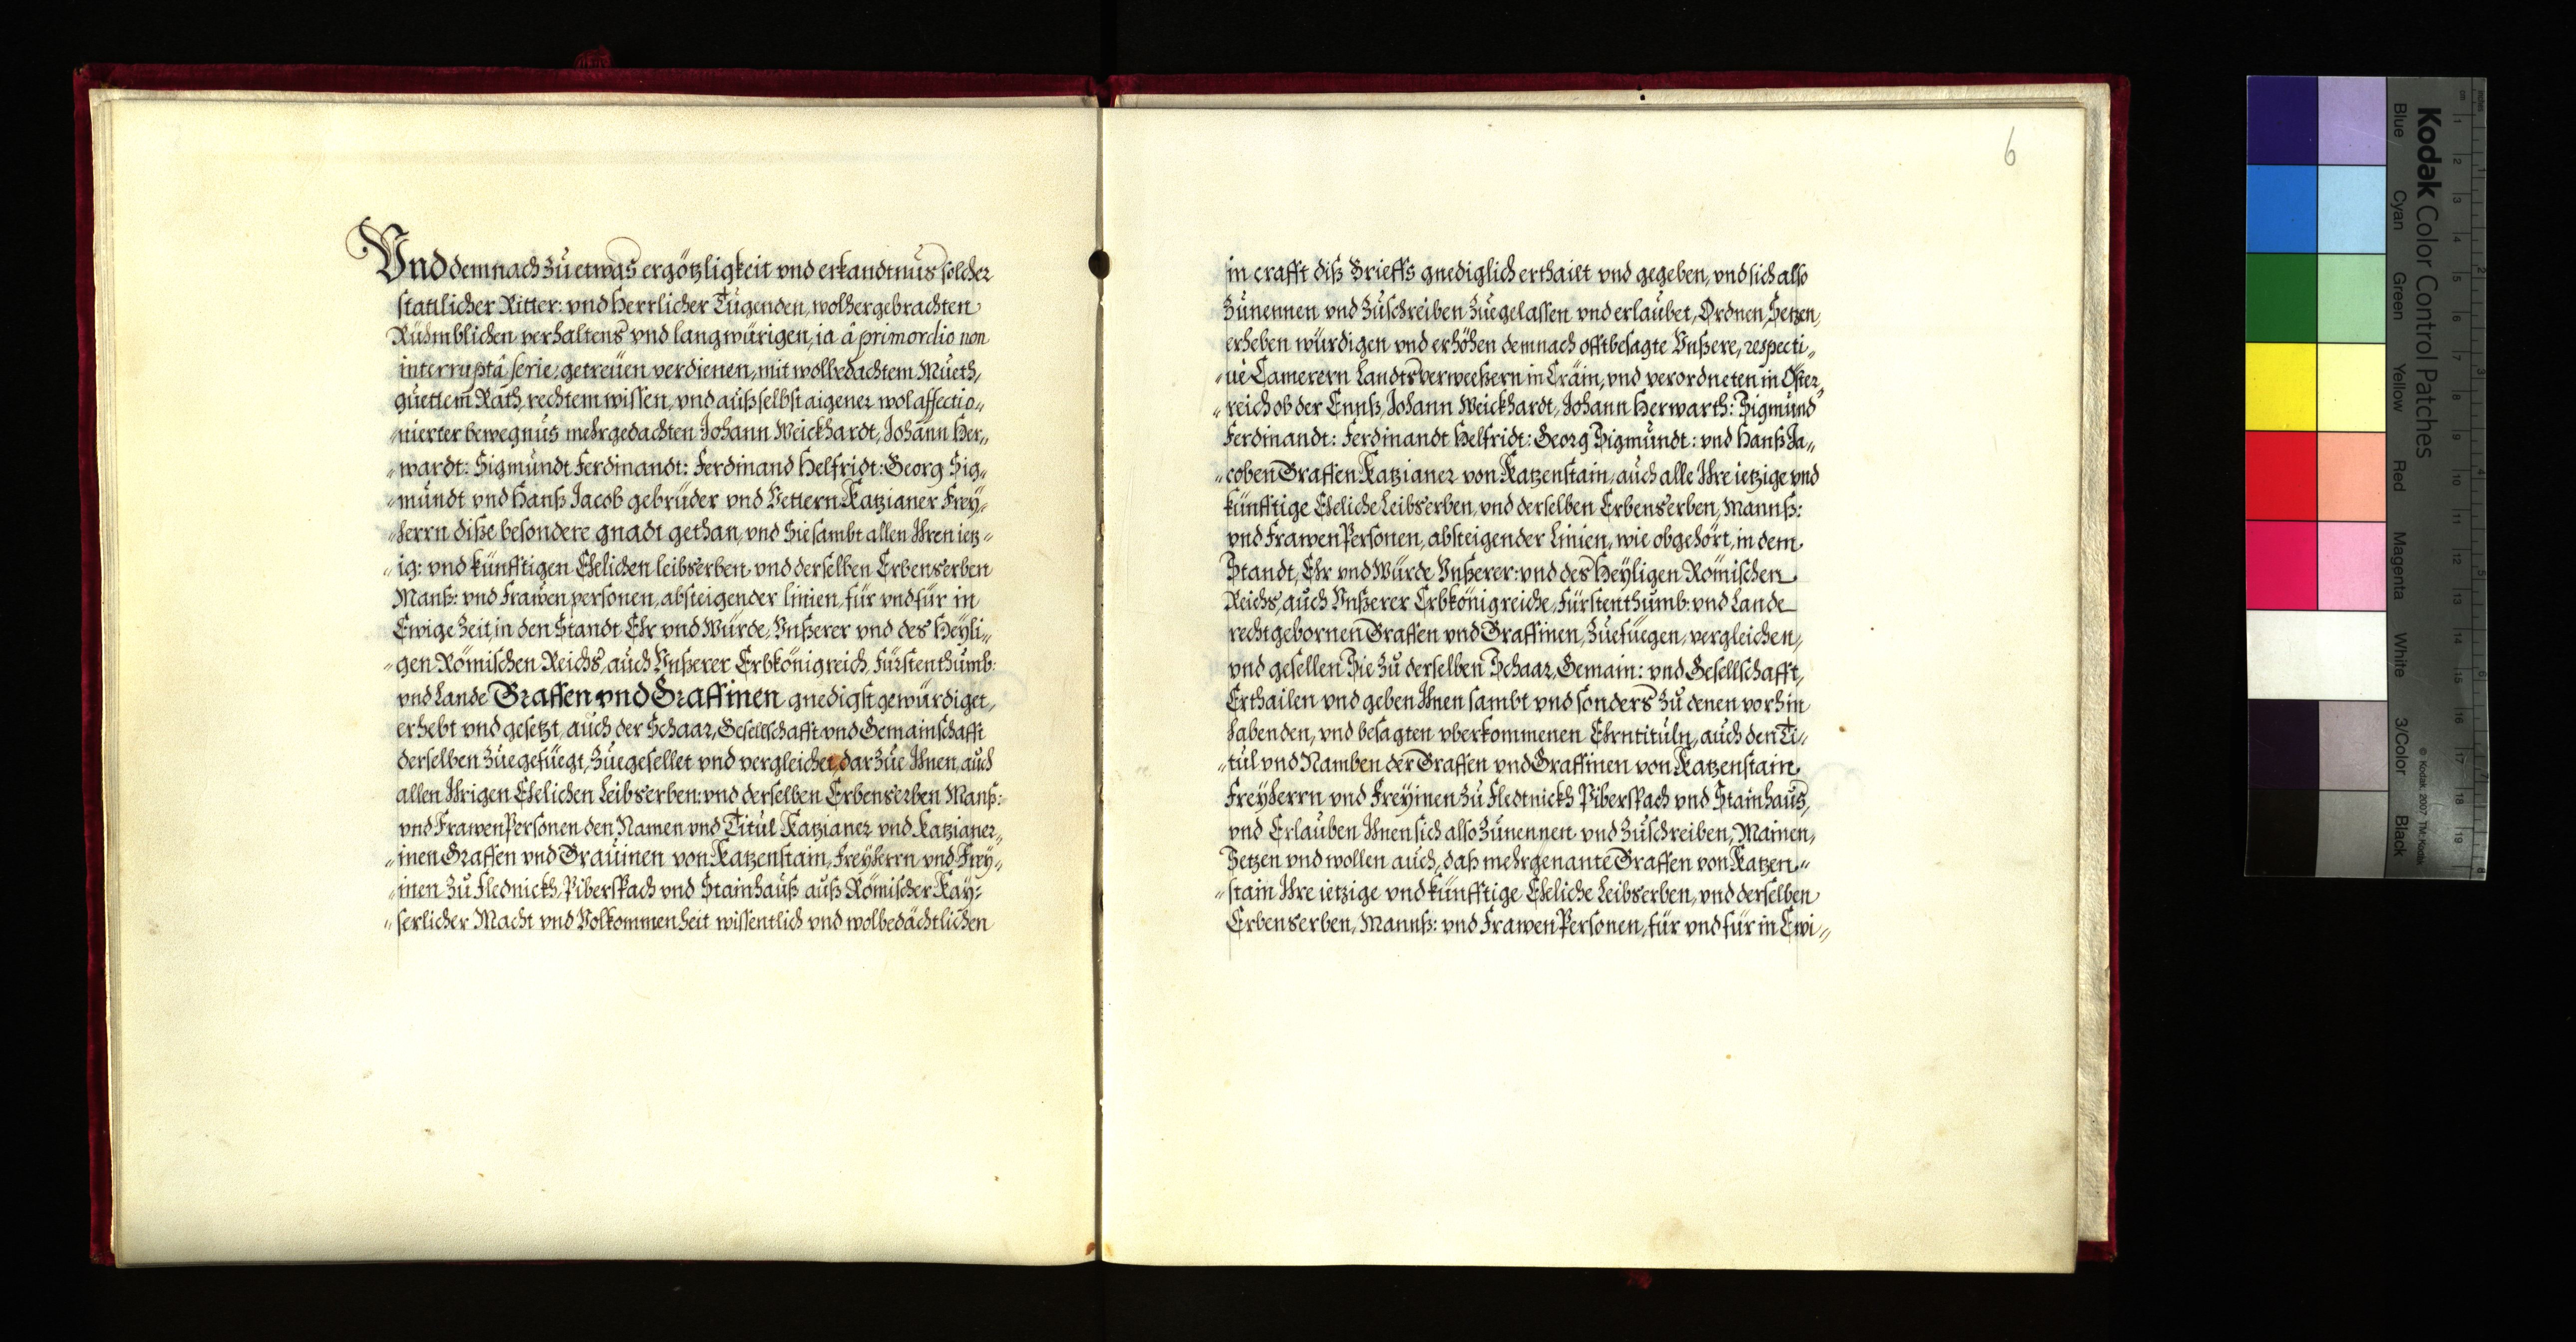 Vnd demnach zu etwas ergötzligkeit vnd erkandtnus solcher
stattlicher Ritter: vnd Herrlicher Tugenden, wolhergebrachten
Rühmblichen verhaltens vnd langwürigen, ia â primordio non
interruptâ serie, getreüen verdienen, mit wolbedachtem Mueth,
guettem Rath, rechtem wissen, vnd auß selbst aigener wol affectio„
„nierter bewegnus mehrgedachten Johann Weickhardt, Johann Her„
„wardt: Sigmundt Ferdinandt: Ferdinand Helfridt: Georg Sig„
„mundt vnd Hanß Jacob gebrüder vnd Vettern Katzianer Frey„
„herrn diße besondere gnadt gethan, vnd Sie sambt allen Ihren ietz„
„ig: vnd künfftigen Ehelichen leibserben vnd derselben Erbenserben
Manß: vnd Frawen personen, absteigender linien, für vnd für in
Ewige Zeit, in den Standt Ehr vnd Würde, Vnßerer vnd des Heyli„
„gen Römischen Reichs, auch Vnßerer Erbkönigreich, Fürstenthumb:
vnd Lande Graffen vnd Graffinen gnedigst gewürdiget,
erhebt vnd gesetzt, auch der Schaar, Gesellschafft vnd Gemainschafft
derselben zuegefüegt, zuegesellet vnd vergleichet, darzue Ihnen, auch
allen Ihrigen Ehelichen Leibserben: vnd derselben Erbenserben Manß:
vnd Frawen Personen den Namen vnd Titul Katzianer vnd Katzianer„
„inen Graffen vnd Grauinen von Katzenstain, Freyherrn vnd Frey„
„inen zu Flednickh, Piberspach vnd Stainhauß auß Römischer Kay:
„serlicher Macht vnd Volkommenheit wissentlich vnd wolbedächtlichen
6
in crafft diß Brieffs gnediglich erthailt vnd gegeben, vnd sich also
zunennen vnd zuschreiben zuegelassen vnd erlaubet, Ordnen, Setzen,
erheben würdigen vnd erhöhen demnach offtbesagte Vnßere, respecti„
„ue Camerern Landtsverweeßern in Crain, vnd verordneten in Öster„
„reich ob der Ennß, Johann Weickhardt, Johann Herwarth: Sigmund
Ferdinandt: Ferdinandt Helfridt: Georg Sigmundt: vnd Hanß Ja„
„coben Graffen Katzianer von Katzenstain, auch alle Ihre ietzige vnd
künfftige Eheliche Leibserben, vnd derselben Erbenserben, Mannß:
vnd Frawen Personen, absteigender Linien, wie obgehört, in dem
Standt, Ehr vnd Würde Vnßerer: vnd des Heyligen Römischen
Reichs, auch Vnßerer Erbkönigreiche, Fürstenthumb: vnd Lande
recht gebornen Graffen vnd Graffinen, zuefüegen, vergleichen,
vnd gesellen Sie zu derselben Schaar, Gemain: vnd Gesellschafft,
Erthailen vnd geben Ihnen sambt vnd sonders zu denen vorhin
habenden, vnd besagten vberkommenen Ehrntituln, auch den Ti„
„tul vnd Namben der Graffen vnd Graffinen von Katzenstain
Freyherrn vnd Freyinen zu Fledtnickh Piberspach vnd Stainhaus,
vnd Erlauben Ihnen sich also zunennen vnd zuschreiben, Mainen,
Setzen vnd wollen auch, daß mehrgenante Graffen von Katzen„
„stain Ihre ietzige vnd künfftige Eheliche Leibserben, vnd derselben
Erbenserben, Mannß: vnd Frawen Personen, für vnd für in Ewi„
Kodak Color Control Patches
© Kodak, 2007 TM: Kodak
Blue Cyan Green Yellow Red Magenta White 3/Color Black